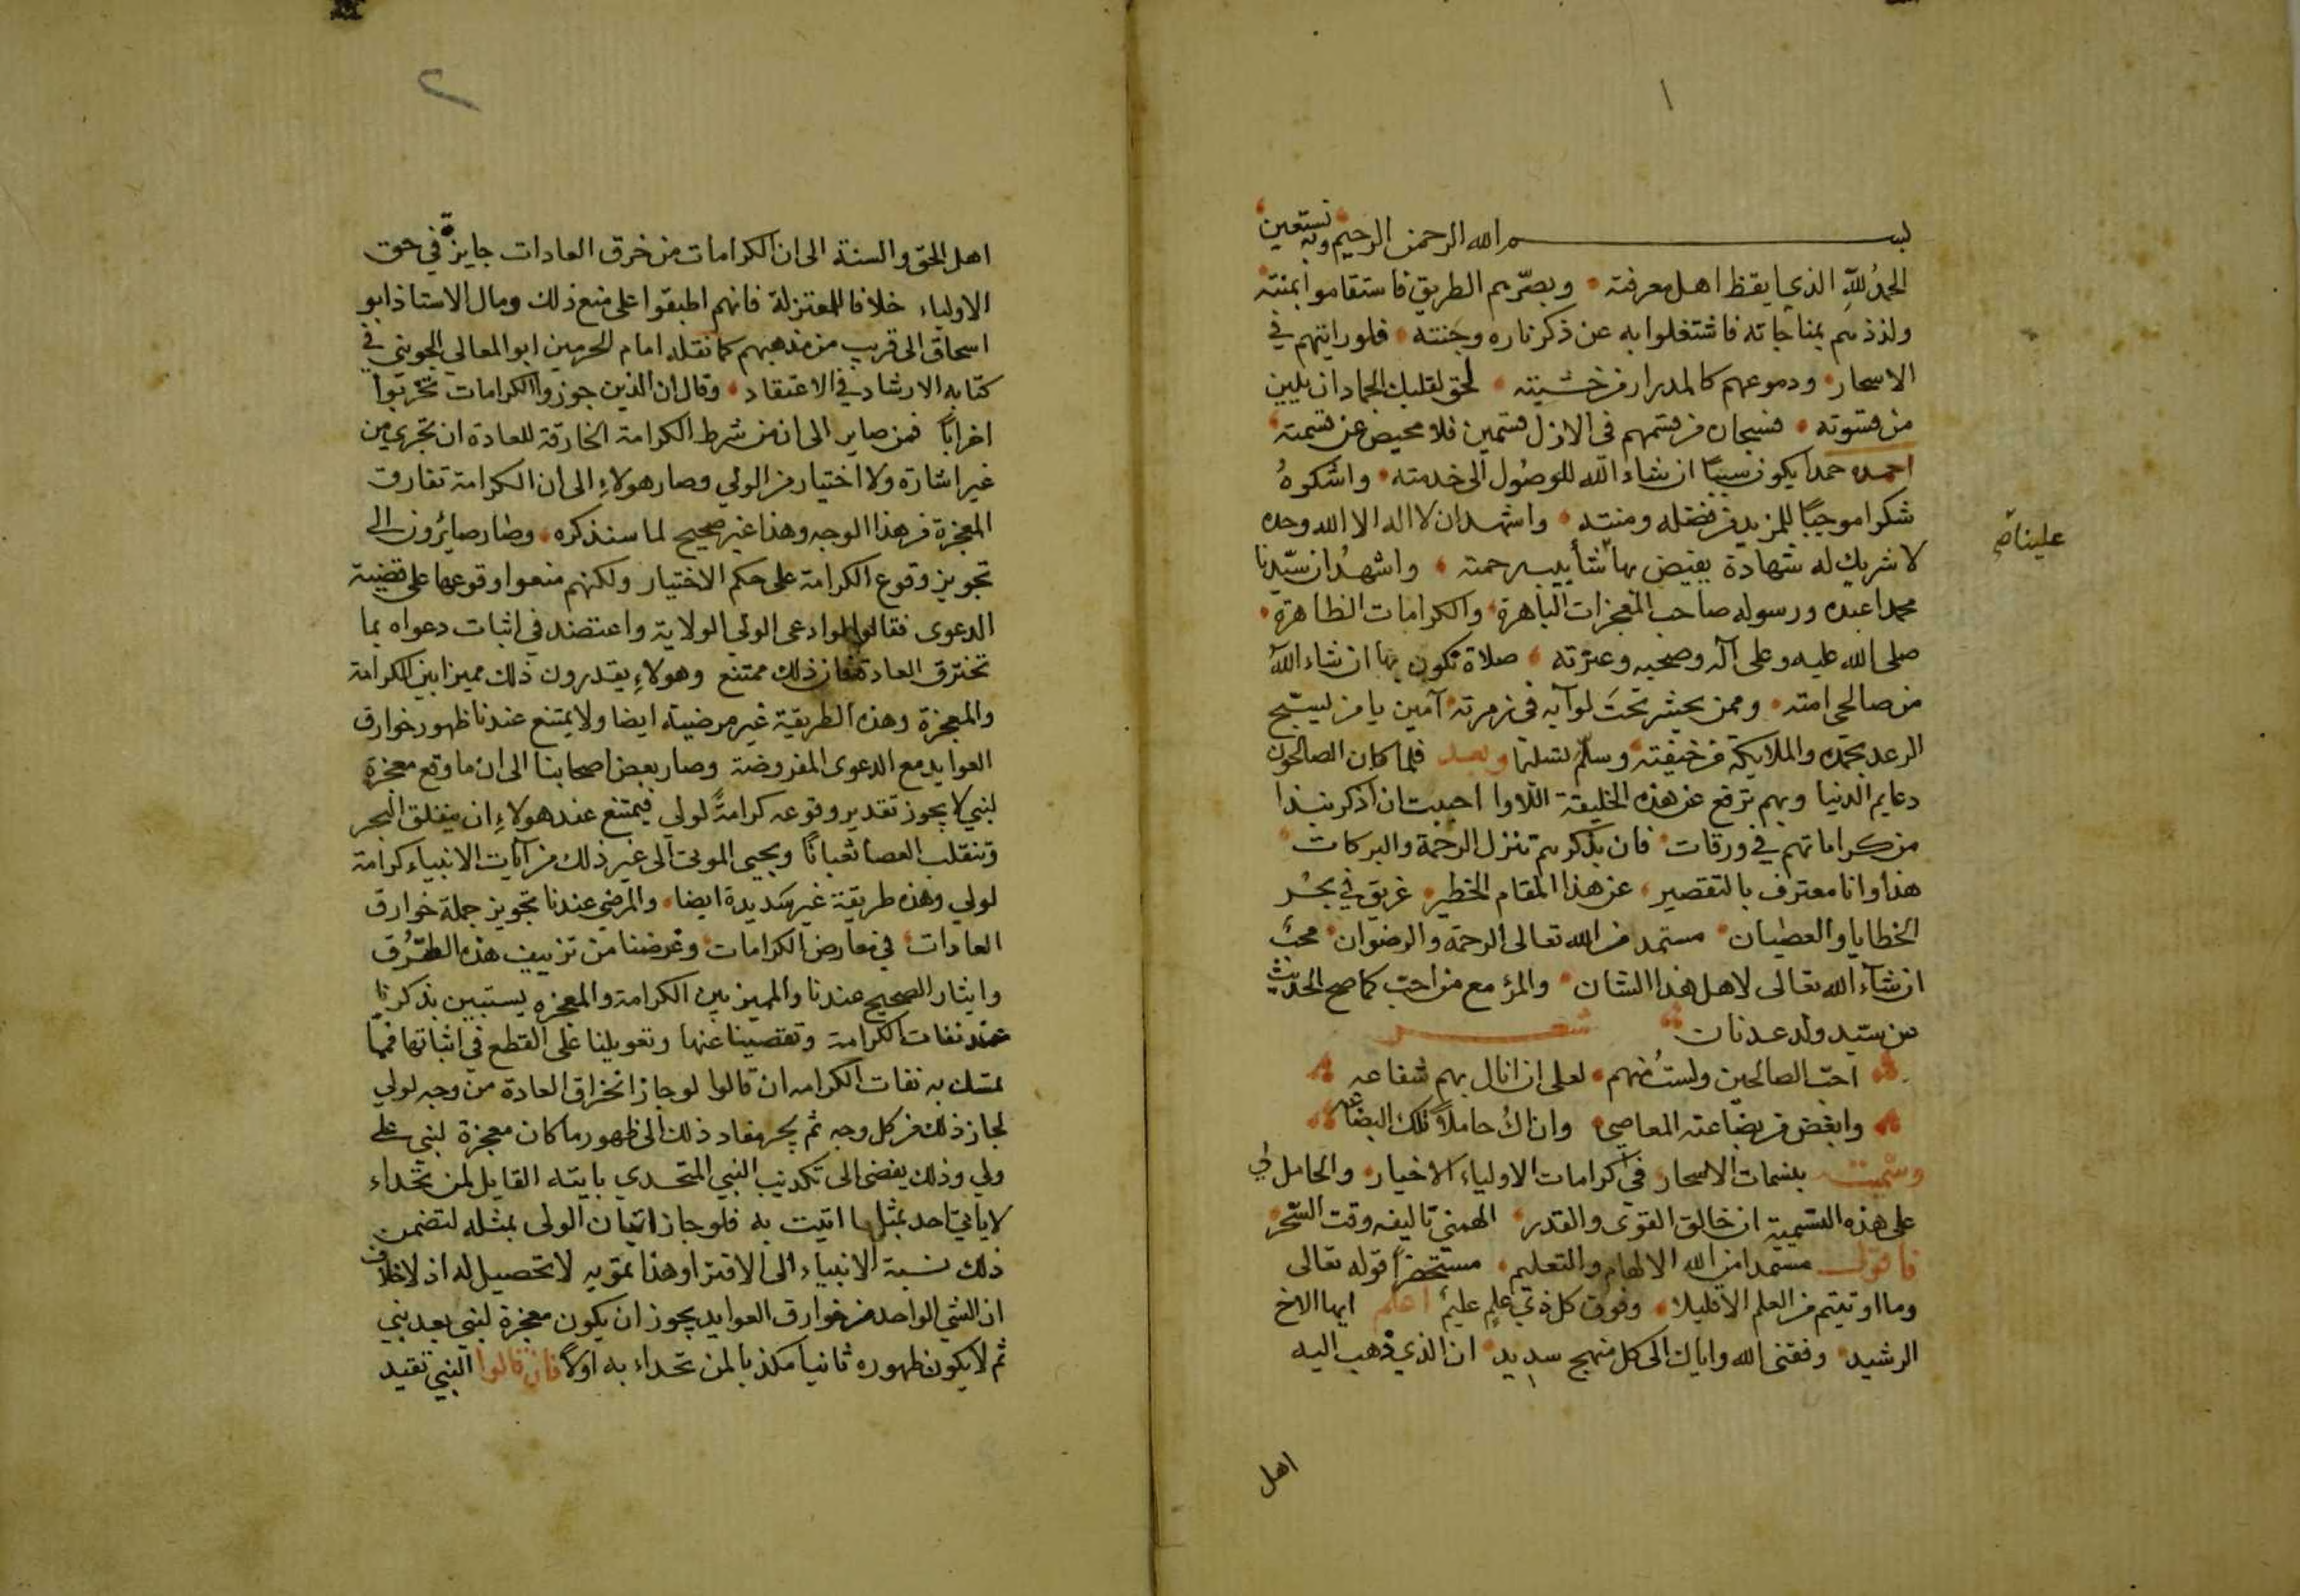 ١
بسم الله الرحمن الرحيم وبه نستعين
الحمدُ للّهِ الذي ايقظ اهل معرفته • وبصّرهم الطريق فاستقاموا بمنته
ولذذهم بمناجاته فاشتغلوا به عن ذكر ناره وجنته • فلو رايتهم في
الاسحار • ودموعهم كالمدرار من خشيته • لحق لقلبك الجماد ان يلين
من قسوته • فسبحان من قسمهم في الازل قسمين فلا محيص عن قسمته
احمده حمدا يكون سببًا ان شاء الله للوصُول الى خدمته • واشكرهُ
شكرا موجبًا للمزيد من فضله ومنته • واشهد ان لا اله الا الله وحده
لا شريك له شهادة يفيض بها شأبيب رحمته • واشهدُ ان سيّدنا
علينا صح
محمدا عبده ورسوله صاحب المعجزات الباهرة • والكرامات الظاهرة •
صلى الله عليه وعلى آله وصحبه وعترته • صلاة نكون بها ان شاء الله
من صالحي امته • وممن يحشر تحتَ لوآيه في زمرته • آمين يا من يسبّح
الرعد بحمده والملايكة من خيفته وسلّم تسليما وبعد فلما كان الصالحون
دعايم الدنيا وبهم ترفع عن هذه الخليقة اللاوا احببت ان اذكر نبذا
من كراماتهم في ورقات • فان بذكرهم تنزل الرحمة والبركات •
هذا وانا معترف بالتقصير • عن هذا المقام الخطير • غريق في بحر
الخطايا والعصيان • مستمد من الله تعالى الرحمة والرضوان • محبٌ
ان شآء الله تعالى لاهل هذا الشان • والمرء مع من احبّ كما صح الحديث
عن سيّد ولد عدنان شعر
احبّ الصالحين ولستُ منهم • لعلى ان انال بهم شفاعه
وابغض من بضاعته المعاصي • وان اكُ حاملاً تلك البضاعه
وسميته بنسمات الاسحار في كرامات الاولياء الاخيار • والحامل لي
على هذه التسمية ان خالق القوى والقدر • الهمني تاليفه وقت السّحر •
فاقول مستمدا من الله الالهام والتعليم • مستحضرًا قوله تعالى
وما اوتيتم من العلم الا قليلا • وفوق كل ذي علمٍ عليمٌ اعلم ايها الاخ
الرشيد • وفقني الله واياك الى كل منهج سديد • ان الذي ذهب اليه
اهل
٢
اهل الحق والسنة الى ان الكرامات من خرق العادات جايزة في حق
الاولياء خلافا للمعتزلة فانهم اطبقوا على منع ذلك ومال الاستاذ ابو
اسحاق الى قريب من مذهبهم كما نقله امام الحرمين ابو المعالي الجويني في
كتابه الارشاد في الاعتقاد • وقال ان الذين جوزوا الكرامات تحزبوا
احزابًا فمن صاير الى ان من شرط الكرامة الخارقة للعادة ان تجري من
غير اشارة ولا اختيار من الولي وصار هولاءِ الى ان الكرامة تفارق
المعجزة من هذا الوجه وهذا غير صحيح لما سنذكره • وصار صائرون الى
تجويز وقوع الكرامة على حكم الاختيار ولكنهم منعوا وقوعها على قضية
الدعوى فقالوا لو ادعى الولي الولاية واعتضد في اثبات دعواه بما
تخترق العادة فان ذلك ممتنع وهولاءِ يقدرون ذلك مميزا بين الكرامة
والمعجزة وهذه الطريقة غير مرضية ايضا ولا يمتنع عندنا ظهور خوارق
العوايد مع الدعوى المفروضة وصار بعض اصحابنا الى ان ما وقع معجزة
لنبي لا يجوز تقدير وقوعه كرامةً لولي فيمتنع عند هولاءِ ان ينفلق البحر
وتنقلب العصا ثعبانًا ويحيى الموتى الى غير ذلك من آيات الانبياء كرامة
لولي وهذه طريقة غير سديدة ايضا • والمرضي عندنا تجويز جملة خوارق
العادات • في معارض الكرامات • وغرضنا من تزييف هذه الطرُق
وايثار الصحيح عندنا والمميز بين الكرامة والمعجزه يستبين بذكرنا
عمد نفات الكرامة وتفصينا عنها وتعويلنا على القطع في اثباتها فمما
تمسك به نفات الكرامه ان قالوا لو جاز انخراق العادة من وجه لولي
لجاز ذلك من كل وجه ثم يجر مفاد ذلك الى ظهور ما كان معجزة لنبي على
ولي وذلك يفضى الى تكذيب النبي المتحدي بايته القايل لمن تحداه
لا ياتي احد بمثل ما اتيت به فلو جاز اتيان الولى بمثله لتضمن
ذلك نسبة الانبياء الى الافترا وهذا تمويه لا تحصيل له اذ لا خلاف
ان الشي الواحد من خوارق العوايد يجوز ان يكون معجزة لنبي بعد نبي
ثم لا يكون ظهوره ثانيا مكذبا لمن تحداه به اولاً فان قالوا النبي تقيد